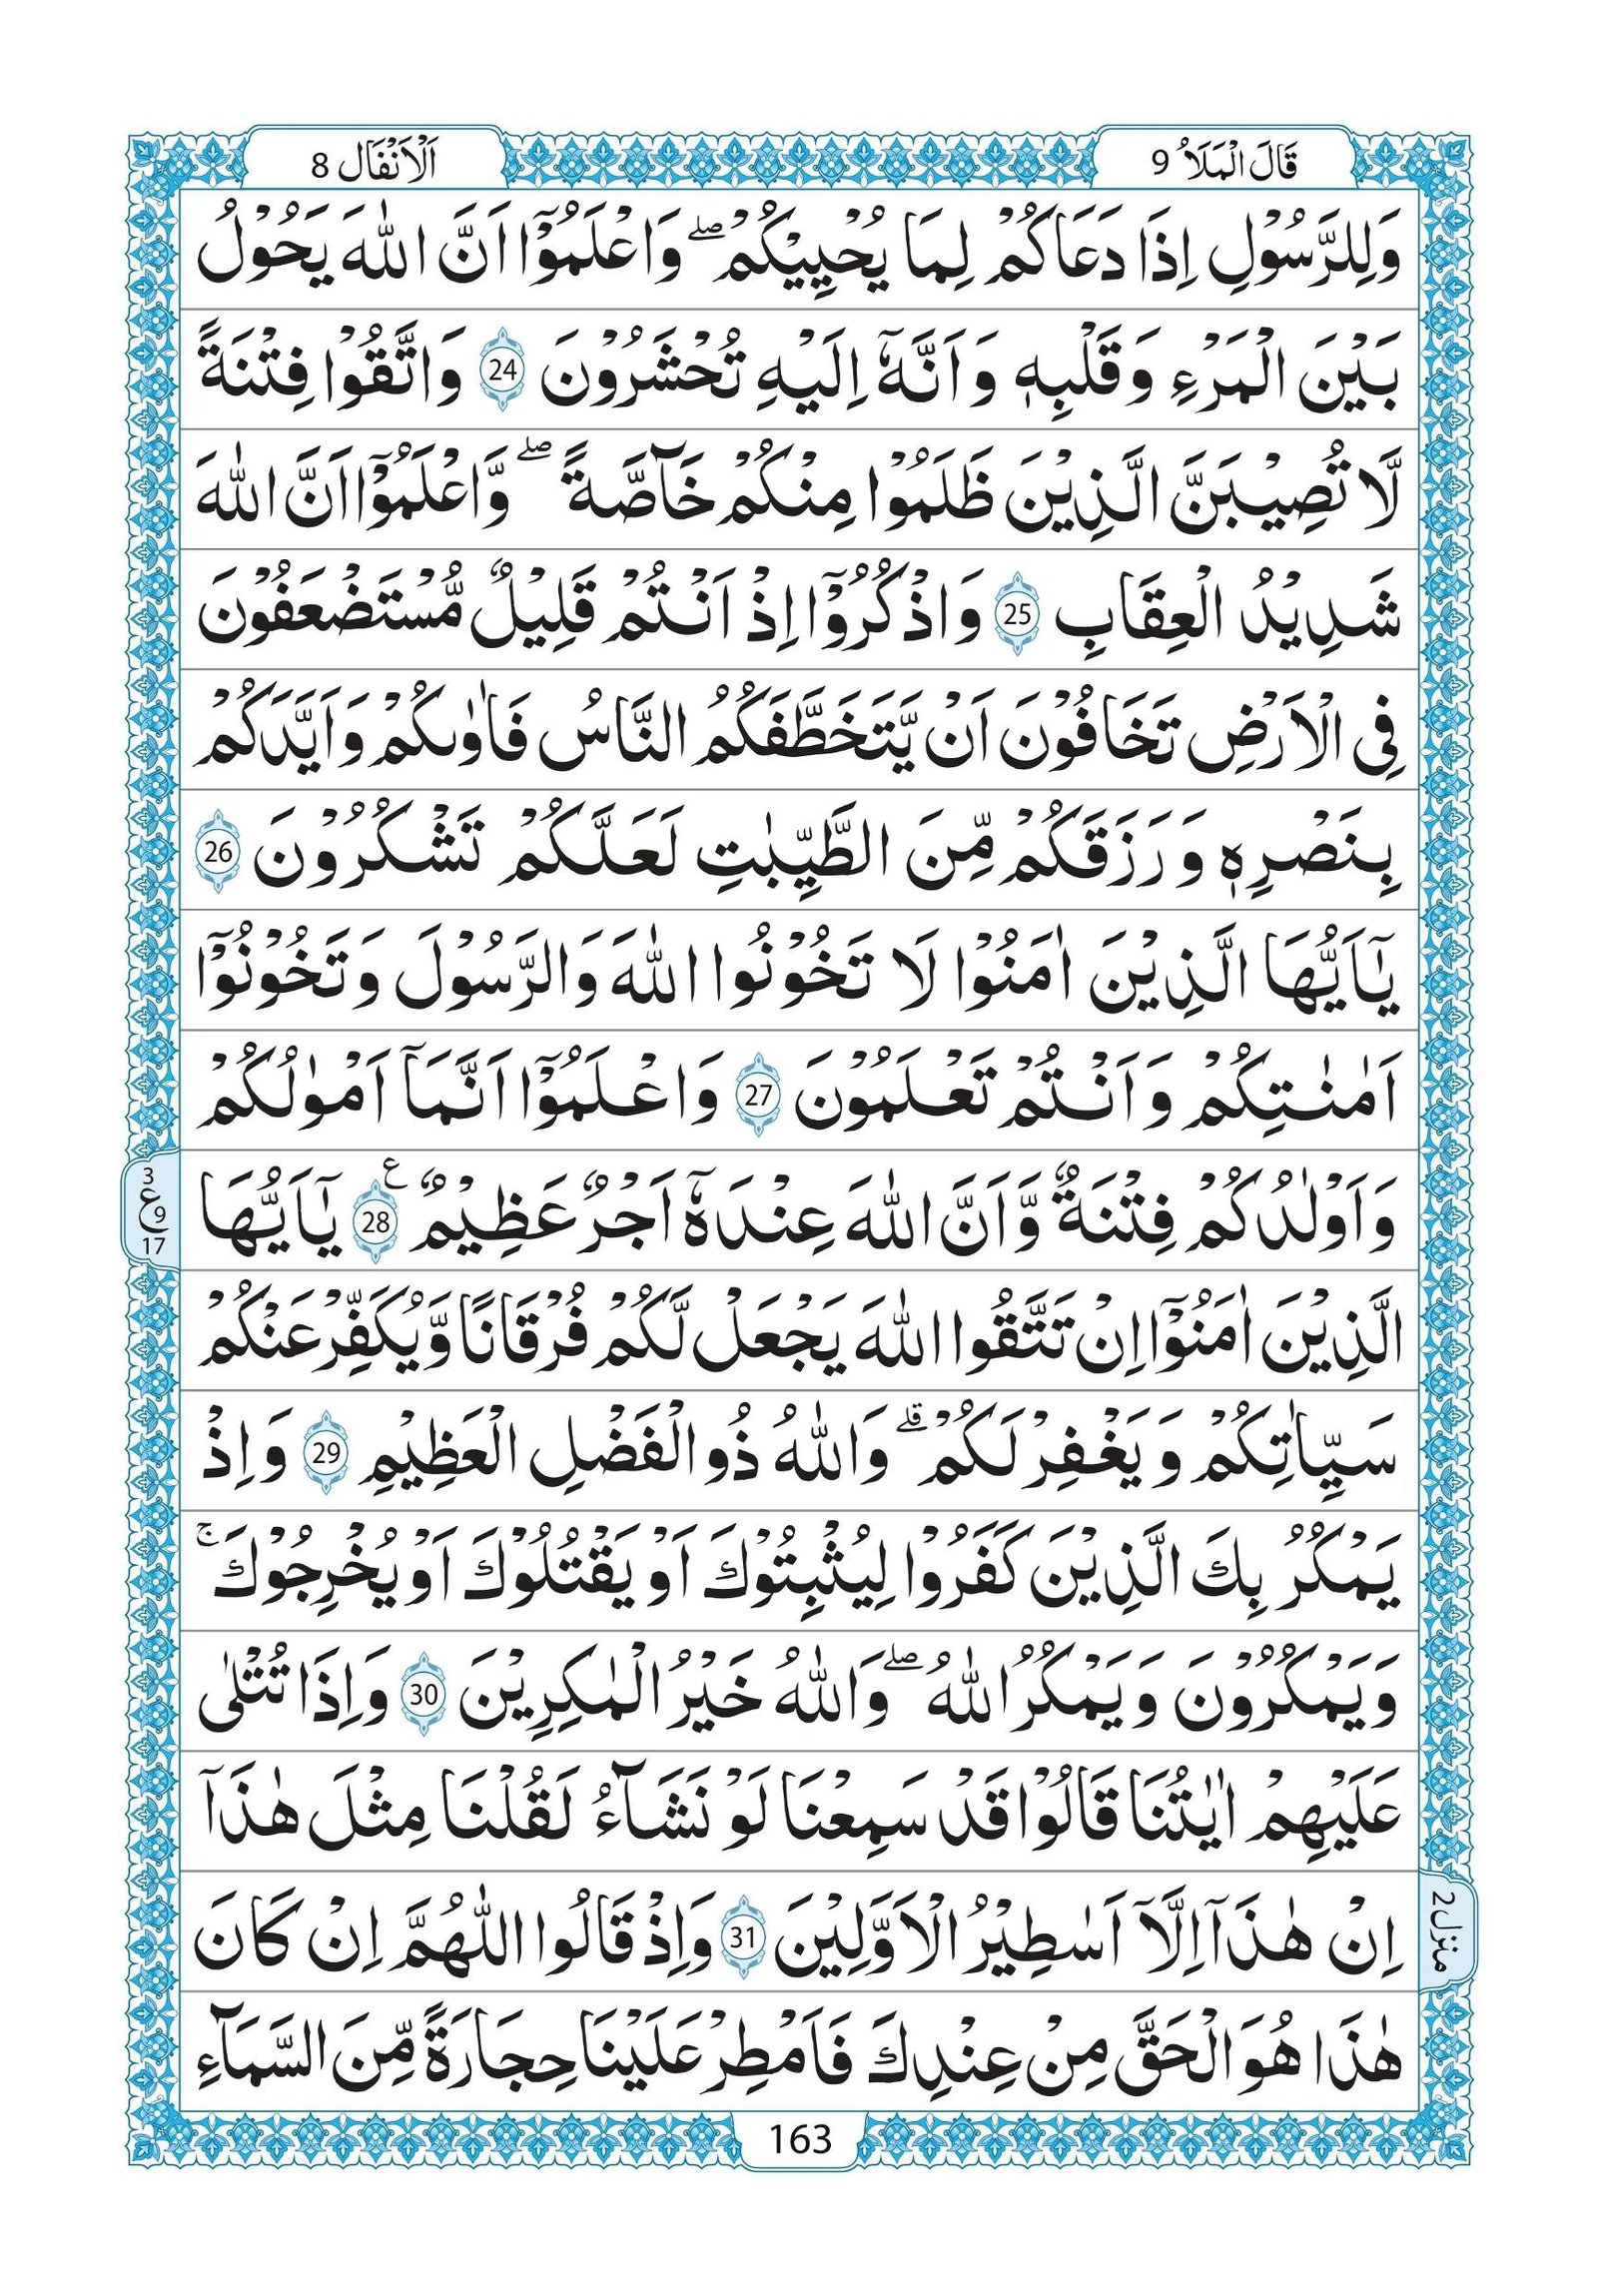 قَالَ الْمَلَاُ 9
اَلْاَنْفَال 8
وَلِلرَّسُوْلِ اِذَا دَعَاكُمْ لِمَا يُحْيِيْكُمْ ۖ وَاعْلَمُوْٓا اَنَّ اللّٰهَ يَحُوْلُ
بَيْنَ الْمَرْءِ وَقَلْبِهٖ وَاَنَّهٗٓ اِلَيْهِ تُحْشَرُوْنَ 24 وَاتَّقُوْا فِتْنَةً
لَّا تُصِيْبَنَّ الَّذِيْنَ ظَلَمُوْا مِنْكُمْ خَآصَّةً ۖ وَّاعْلَمُوْٓا اَنَّ اللّٰهَ
شَدِيْدُ الْعِقَابِ 25 وَاذْكُرُوْٓا اِذْ اَنْتُمْ قَلِيْلٌ مُّسْتَضْعَفُوْنَ
فِى الْاَرْضِ تَخَافُوْنَ اَنْ يَّتَخَطَّفَكُمُ النَّاسُ فَاٰوٰىكُمْ وَاَيَّدَكُمْ
بِنَصْرِهٖ وَرَزَقَكُمْ مِّنَ الطَّيِّبٰتِ لَعَلَّكُمْ تَشْكُرُوْنَ 26
يٰٓاَيُّهَا الَّذِيْنَ اٰمَنُوْا لَا تَخُوْنُوا اللّٰهَ وَالرَّسُوْلَ وَتَخُوْنُوْٓا
اَمٰنٰتِكُمْ وَاَنْتُمْ تَعْلَمُوْنَ 27 وَاعْلَمُوْٓا اَنَّمَآ اَمْوٰلُكُمْ
وَاَوْلٰدُكُمْ فِتْنَةٌ وَّاَنَّ اللّٰهَ عِنْدَهٗٓ اَجْرٌ عَظِيْمٌ ع 28 يٰٓاَيُّهَا
3 ع 9 17
الَّذِيْنَ اٰمَنُوْٓا اِنْ تَتَّقُوا اللّٰهَ يَجْعَلْ لَّكُمْ فُرْقَانًا وَّيُكَفِّرْ عَنْكُمْ
سَيِّاٰتِكُمْ وَيَغْفِرْ لَكُمْ ۗ وَاللّٰهُ ذُو الْفَضْلِ الْعَظِيْمِ 29 وَاِذْ
يَمْكُرُ بِكَ الَّذِيْنَ كَفَرُوْا لِيُثْبِتُوْكَ اَوْ يَقْتُلُوْكَ اَوْ يُخْرِجُوْكَ ۚ
وَيَمْكُرُوْنَ وَيَمْكُرُ اللّٰهُ ۖ وَاللّٰهُ خَيْرُ الْمٰكِرِيْنَ 30 وَاِذَا تُتْلٰى
عَلَيْهِمْ اٰيٰتُنَا قَالُوْا قَدْ سَمِعْنَا لَوْ نَشَآءُ لَقُلْنَا مِثْلَ هٰذَآ
اِنْ هٰذَآ اِلَّآ اَسٰطِيْرُ الْاَوَّلِيْنَ 31 وَاِذْ قَالُوا اللّٰهُمَّ اِنْ كَانَ
منزل 2
هٰذَا هُوَ الْحَقَّ مِنْ عِنْدِكَ فَاَمْطِرْ عَلَيْنَا حِجَارَةً مِّنَ السَّمَآءِ
163